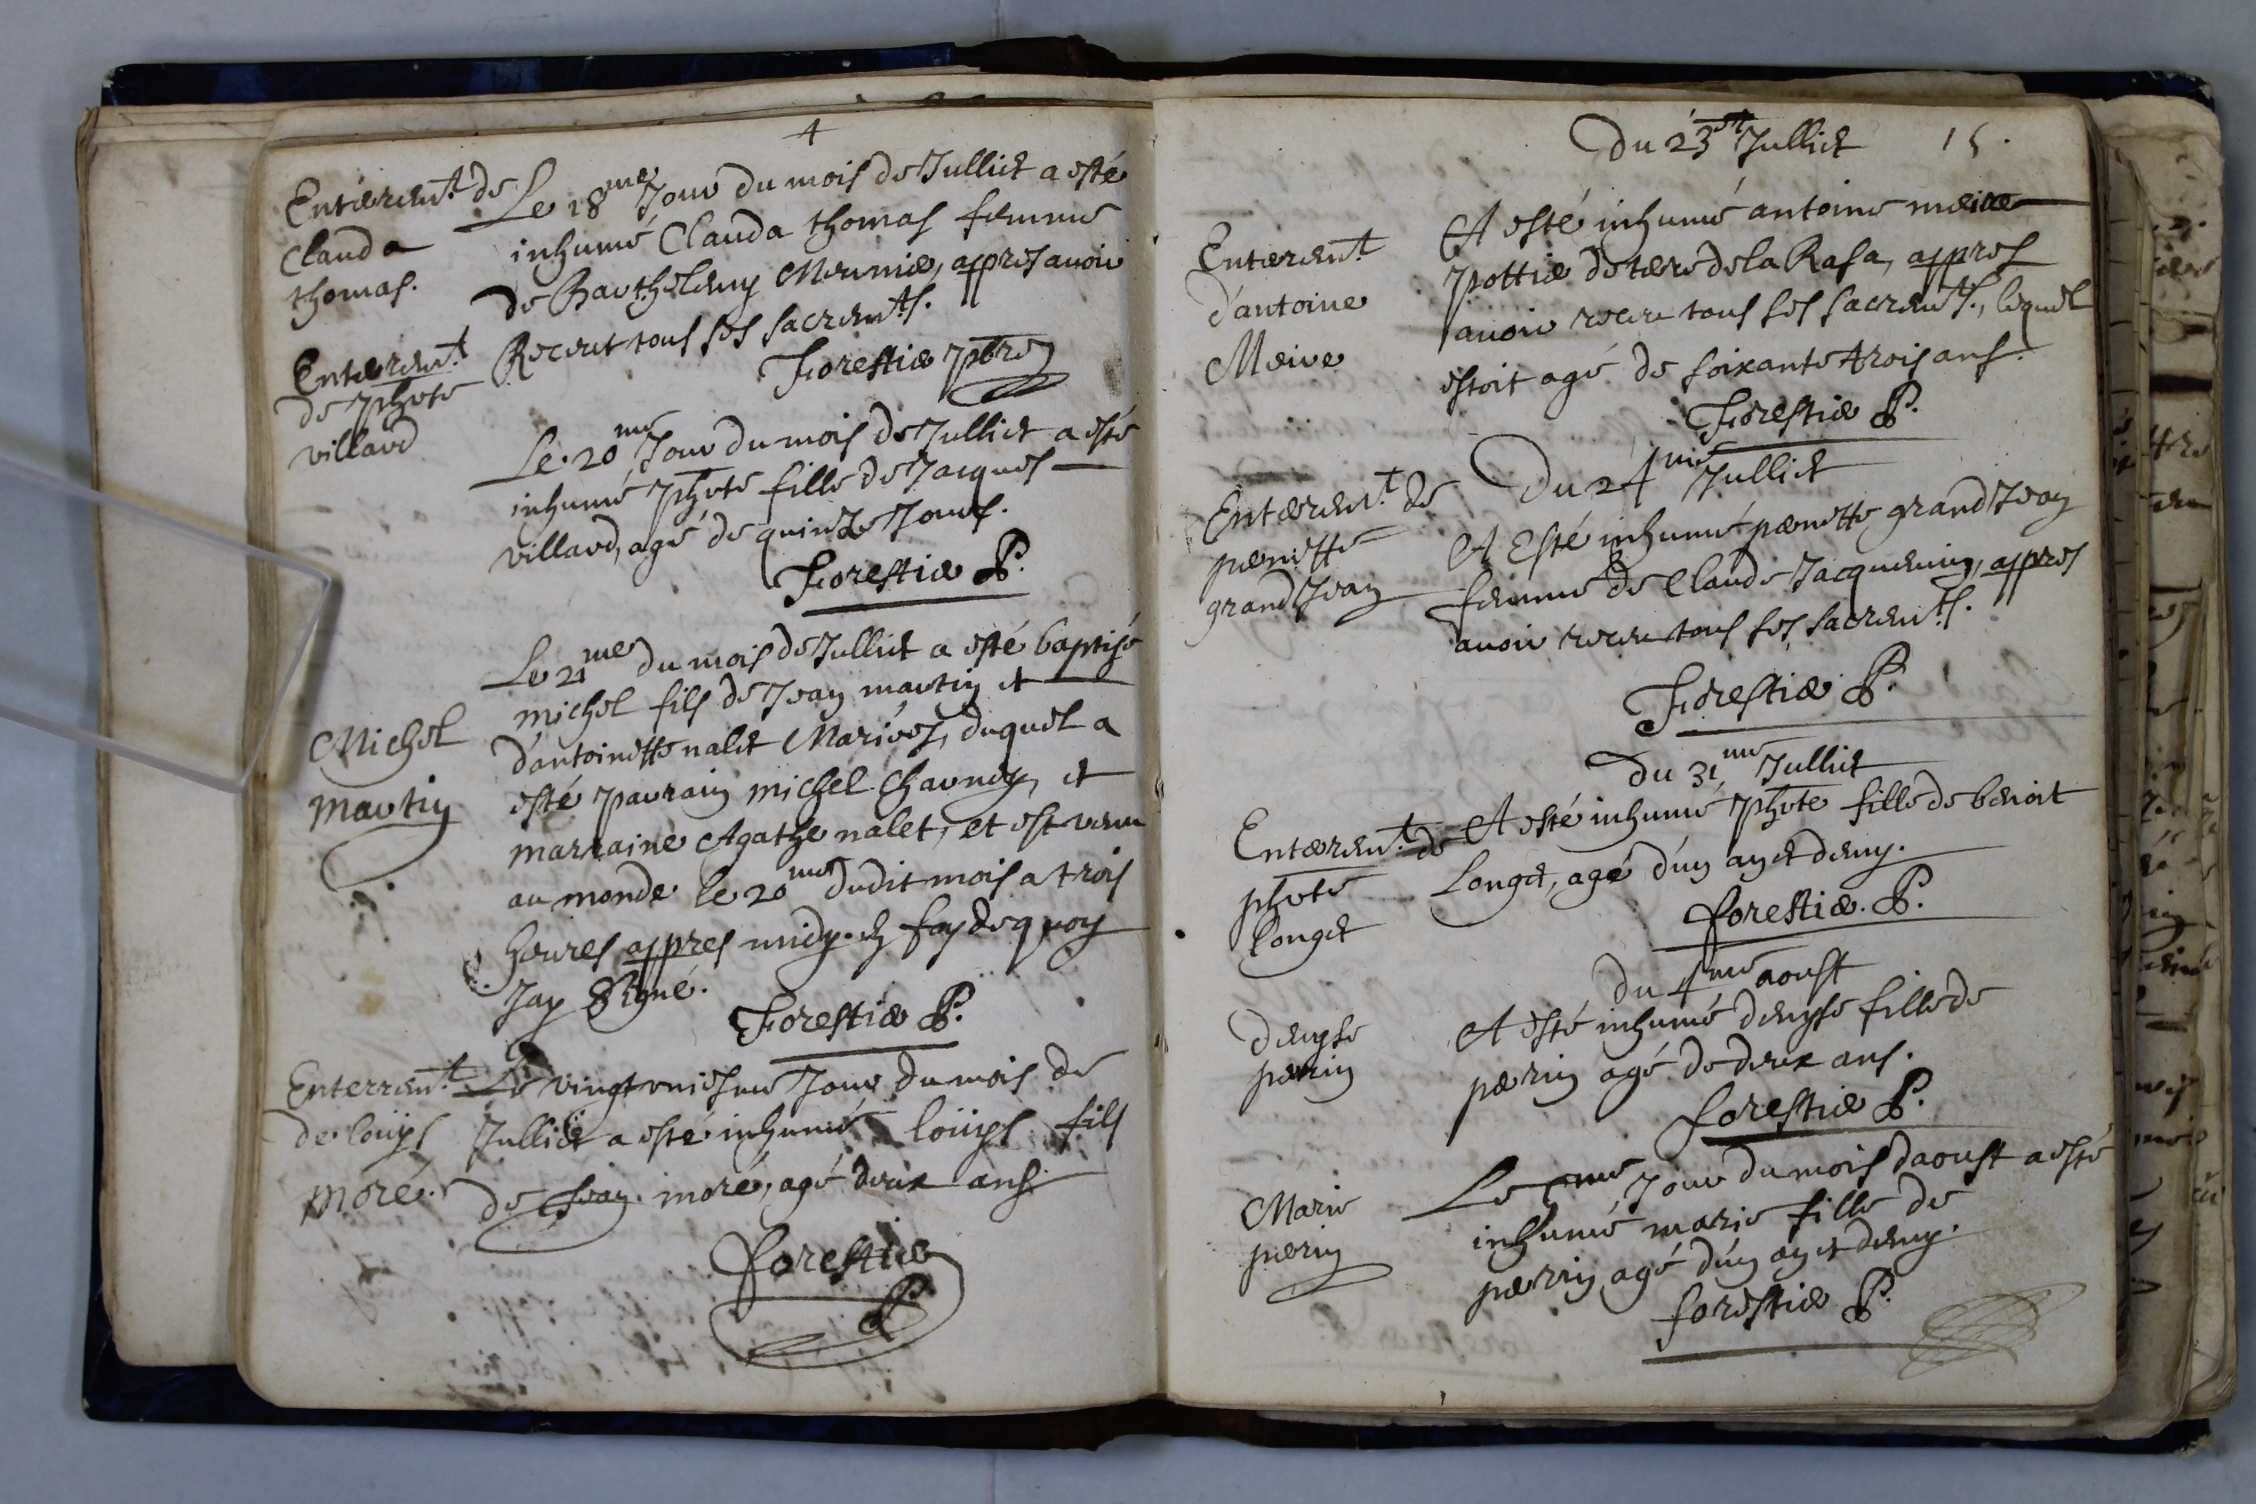 Enterem.t de
Clauda
thomas.
Le 18me Jour du mois de Julliet a esté
inhumé Clauda thomas femme
de Barthelemy Meunier, appres avoir
Receut tous ses sacrem.ts.
Forestier pbre
Enterem.t
de phote
villard
Le 20me Jour du mois de Julliet a esté
inhumé, phote fille de Jacques
villard, agé de quinze Jours.
Forestier P.
Michel
martin
Le 21me du mois de Julliet a esté baptisé
michel fils de Jean martin et
d'antoinette nalet Mariées, duquel a
esté parrain michel Charnay, et
marraine Agathe nalet, et est venu
au monde le 20me dudit mois a trois
heures appres midy. en foy dequoy
Jay Signé.
Forestier P.
Enterrem.t
de loüys
moré.
Le vingt uniesme Jour du mois de
Julliet a esté inhumé loüys fils
de Jean moré, agé deux ans.
Forestier
P.
Du 23me Julliet
15.
Enterem.t
d'antoine
Meire
A esté inhumé antoine meire
pottier de terre de la Rasa, appres
avoir receu tous ses sacrem.ts, lequel
estoit agé de soixante trois ans.
Forestier P.
Du 24me Julliet
Enterem.t de
pernette
grand Jean
A Esté inhumé pernette grand Jean
femme de Claude Jacquemin, appres
avoir receu tous ses sacrem.ts.
Forestier P.
Du 31me Julliet
Enterem.t de
phote
longet
A esté inhumé, phote fille de benoit
Longet, agé d'un an et demy.
forestier. P.
du 4me aoust
denyse
perrin
A esté inhumé denyse fille de
perrin agé de deux ans.
forestier P.
Marie
perrin
Le 5me Jour du mois daoust a esté
inhumé marie fille de
perrin agé d'un an et demy.
forestier P.